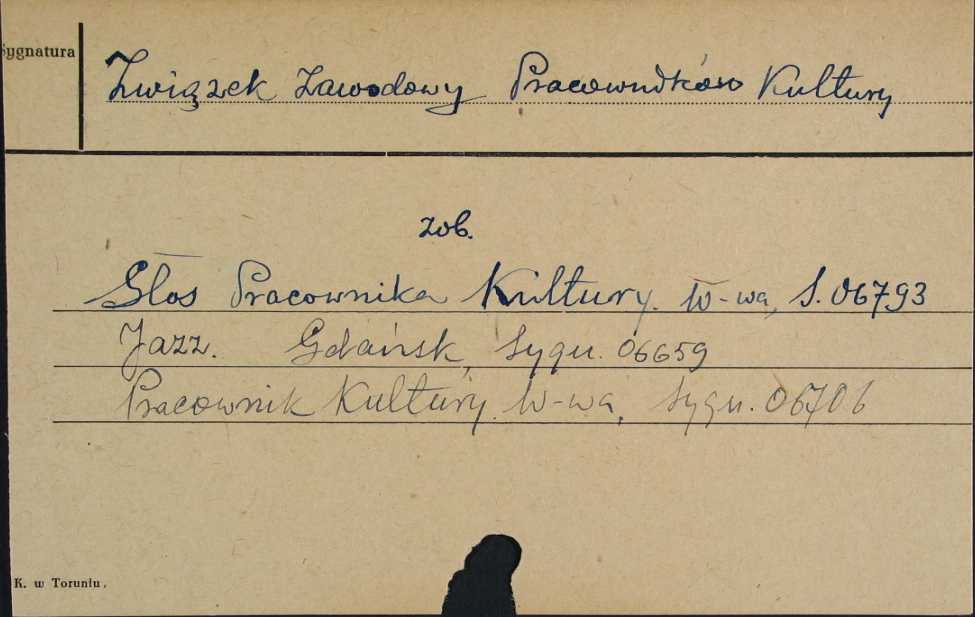 Sygnatura
Związek Zawodowy Pracowników Kultury
zob.
Głos Pracownika Kultury. W-wa, S. 06793
Jazz. Gdańsk, Sygn. 06659
Pracownik Kultury. W-wa, Sygn. 06706
K. w Toruniu.